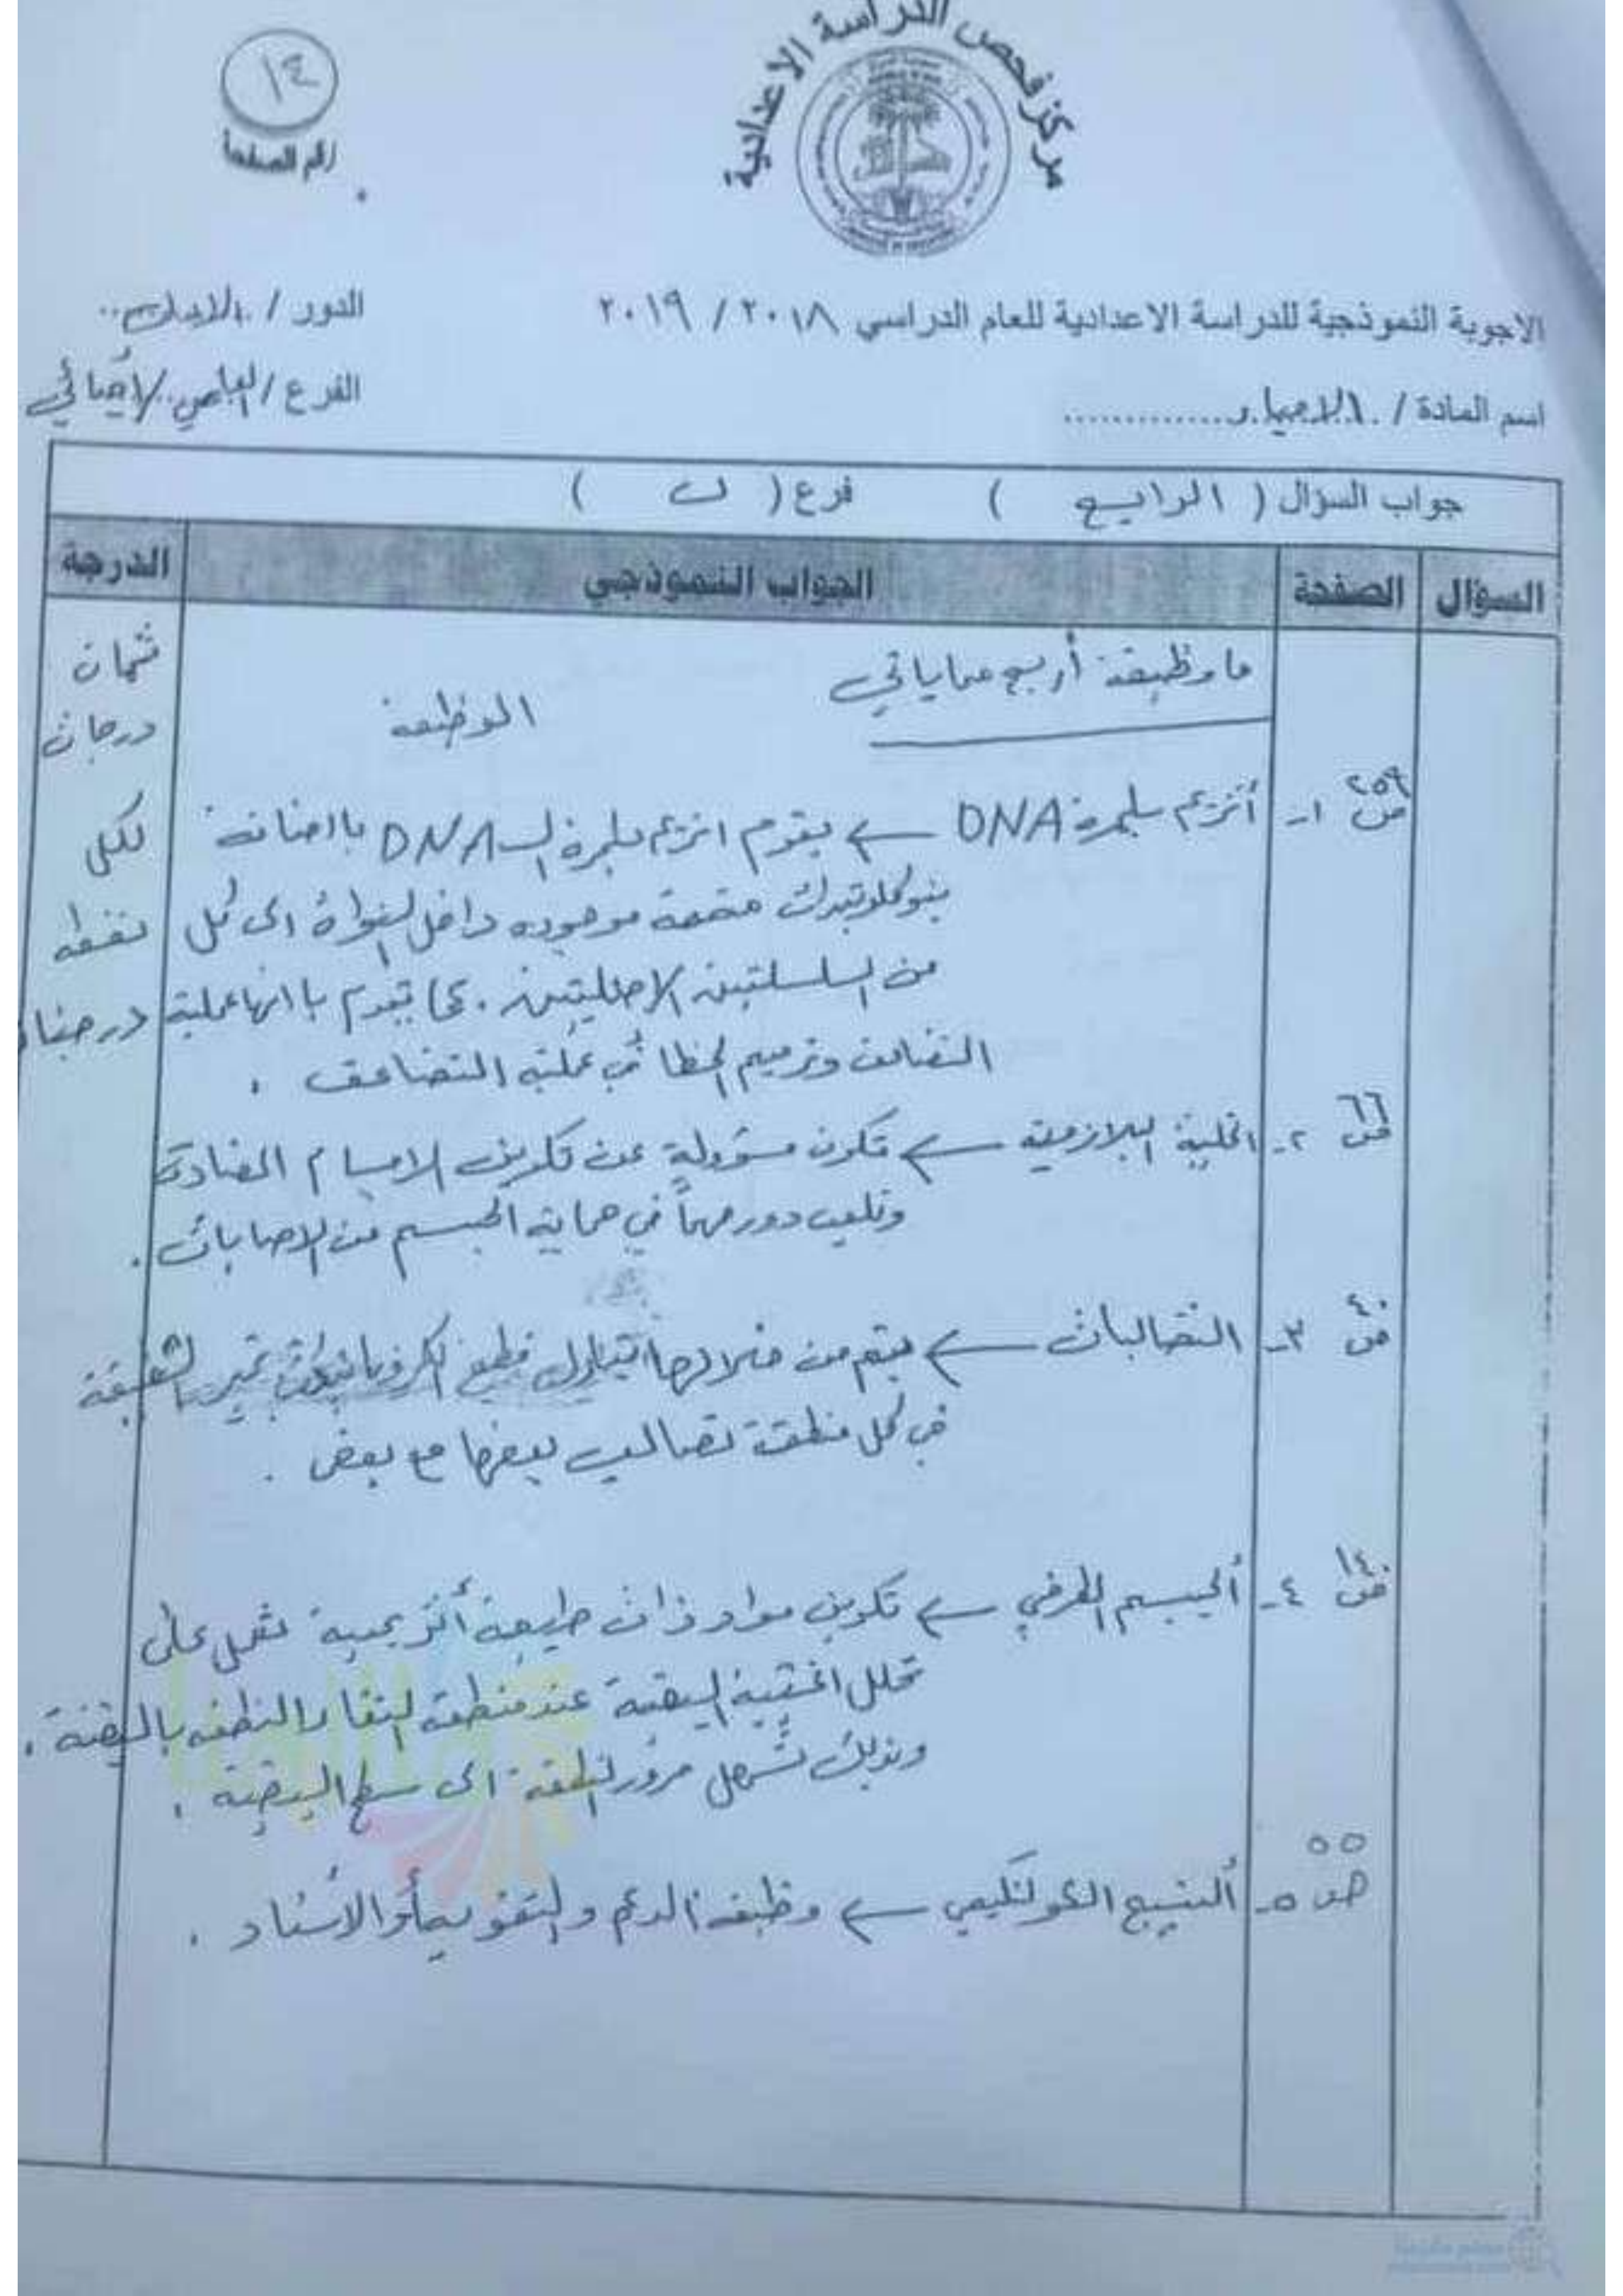 مركز فحص الدراسة الاعدادية
١٤
رقم الصفحة
الاجوبة النموذجية للدراسة الاعدادية للعام الدراسي ٢٠١٨ / ٢٠١٩
الدور /
اسم المادة / الاحياء
الفرع / العلمي الاحيائي
جواب السؤال ( الرابع ) فرع ( ب )
السؤال الصفحة الجواب النموذجي الدرجة
ما وظيفة أربع مما ياتي
الوظيفة
ثمان
درجات
لكل
نقطه
درجتان
ص ٢٥٩ ١- أنزيم بلمرة DNA ← يقوم انزيم بلمرة الـ DNA باضافة
نيوكلوتيدات متممة موجوده داخل النواة الى كل
من السلسلتين الاصليتين . كما تقوم بانهاء عملية
التضاعف وترميم الخطا في عملية التضاعف .
ص ٦٦ ٢- الخلية البلازمية ← تكون مسؤولة عن تكوين الاجسام المضادة
وتلعب دور مهماً في حماية الجسم من الاصابات .
ص ٤٠ ٣- التصالبات ← يتم من خلالها تبادل قطع الكروماتيدات غير الشقيقة
في كل منطقة تصالب بعضها مع بعض .
ص ١٤٠ ٤- الجسيم الطرفي ← تكوين مواد ذات طبيعة أنزيمية تعمل على
تحلل اغشية البيضة عند منطقة التقاء النطفه بالبيضة .
وبذلك تسهل مرور النطفة الى سطح البيضة .
ص ٥٥ ٥- النسيج الكولنكيمي ← وظيفة الدعم والتقوية أو الاسناد .